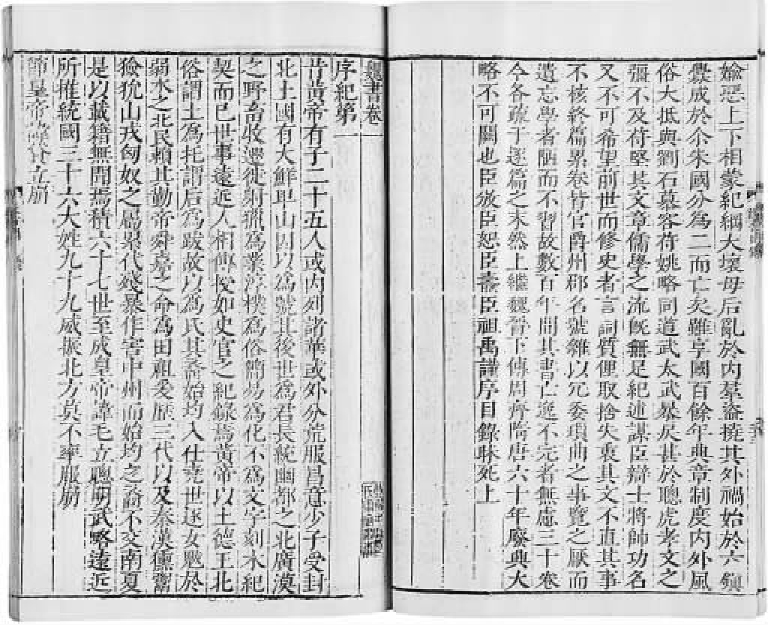 媮惡上下相蒙紀綱大壞母后亂於內羣盜撓其外禍始於六鎮
釁成於尒朱國分為二而亡矣雖享國百餘年典章制度內外風
俗大抵與劉石慕容苻姚略同道武太武暴戾甚於聰虎孝文之
彊不及苻堅其文章儒學之流旣無足紀述謀臣辯士將帥功名
又不可希望前世而修史者言詞質俚取捨失衷其文不直其事
不核終篇累卷皆官爵州郡名號雜以冗委瑣曲之事覽之厭而
遺忘學者陋而不習故數百年間其書亡逸不完者無慮三十卷
今各疏于逐篇之末然上繼魏晉下傳周齊隋唐六十年廢典大
略不可闕也臣攽臣恕臣燾臣祖禹謹序目錄昧死上
魏書卷一
序紀第一
昔黃帝有子二十五人或內列諸華或外分荒服昌意少子受封
北土國有大鮮卑山因以為號其後世為君長統幽都之北廣漠
之野畜牧遷徙射獵為業淳樸為俗簡易為化不為文字刻木紀
契而已世事遠近人相傳授如史官之紀錄焉黃帝以土德王北
俗謂土為托謂后為跋故以為氏其裔始均入仕堯世逐女魃於
弱水之北民賴其勤帝舜嘉之命為田祖爰歷三代以及秦漢獯鬻
獫狁山戎匈奴之屬累代殘暴作害中州而始均之裔不交南夏
是以載籍無聞焉積六十七世至成皇帝諱毛立聰明武略遠近
所推統國三十六大姓九十九威振北方莫不率服崩
節皇帝諱貸立崩